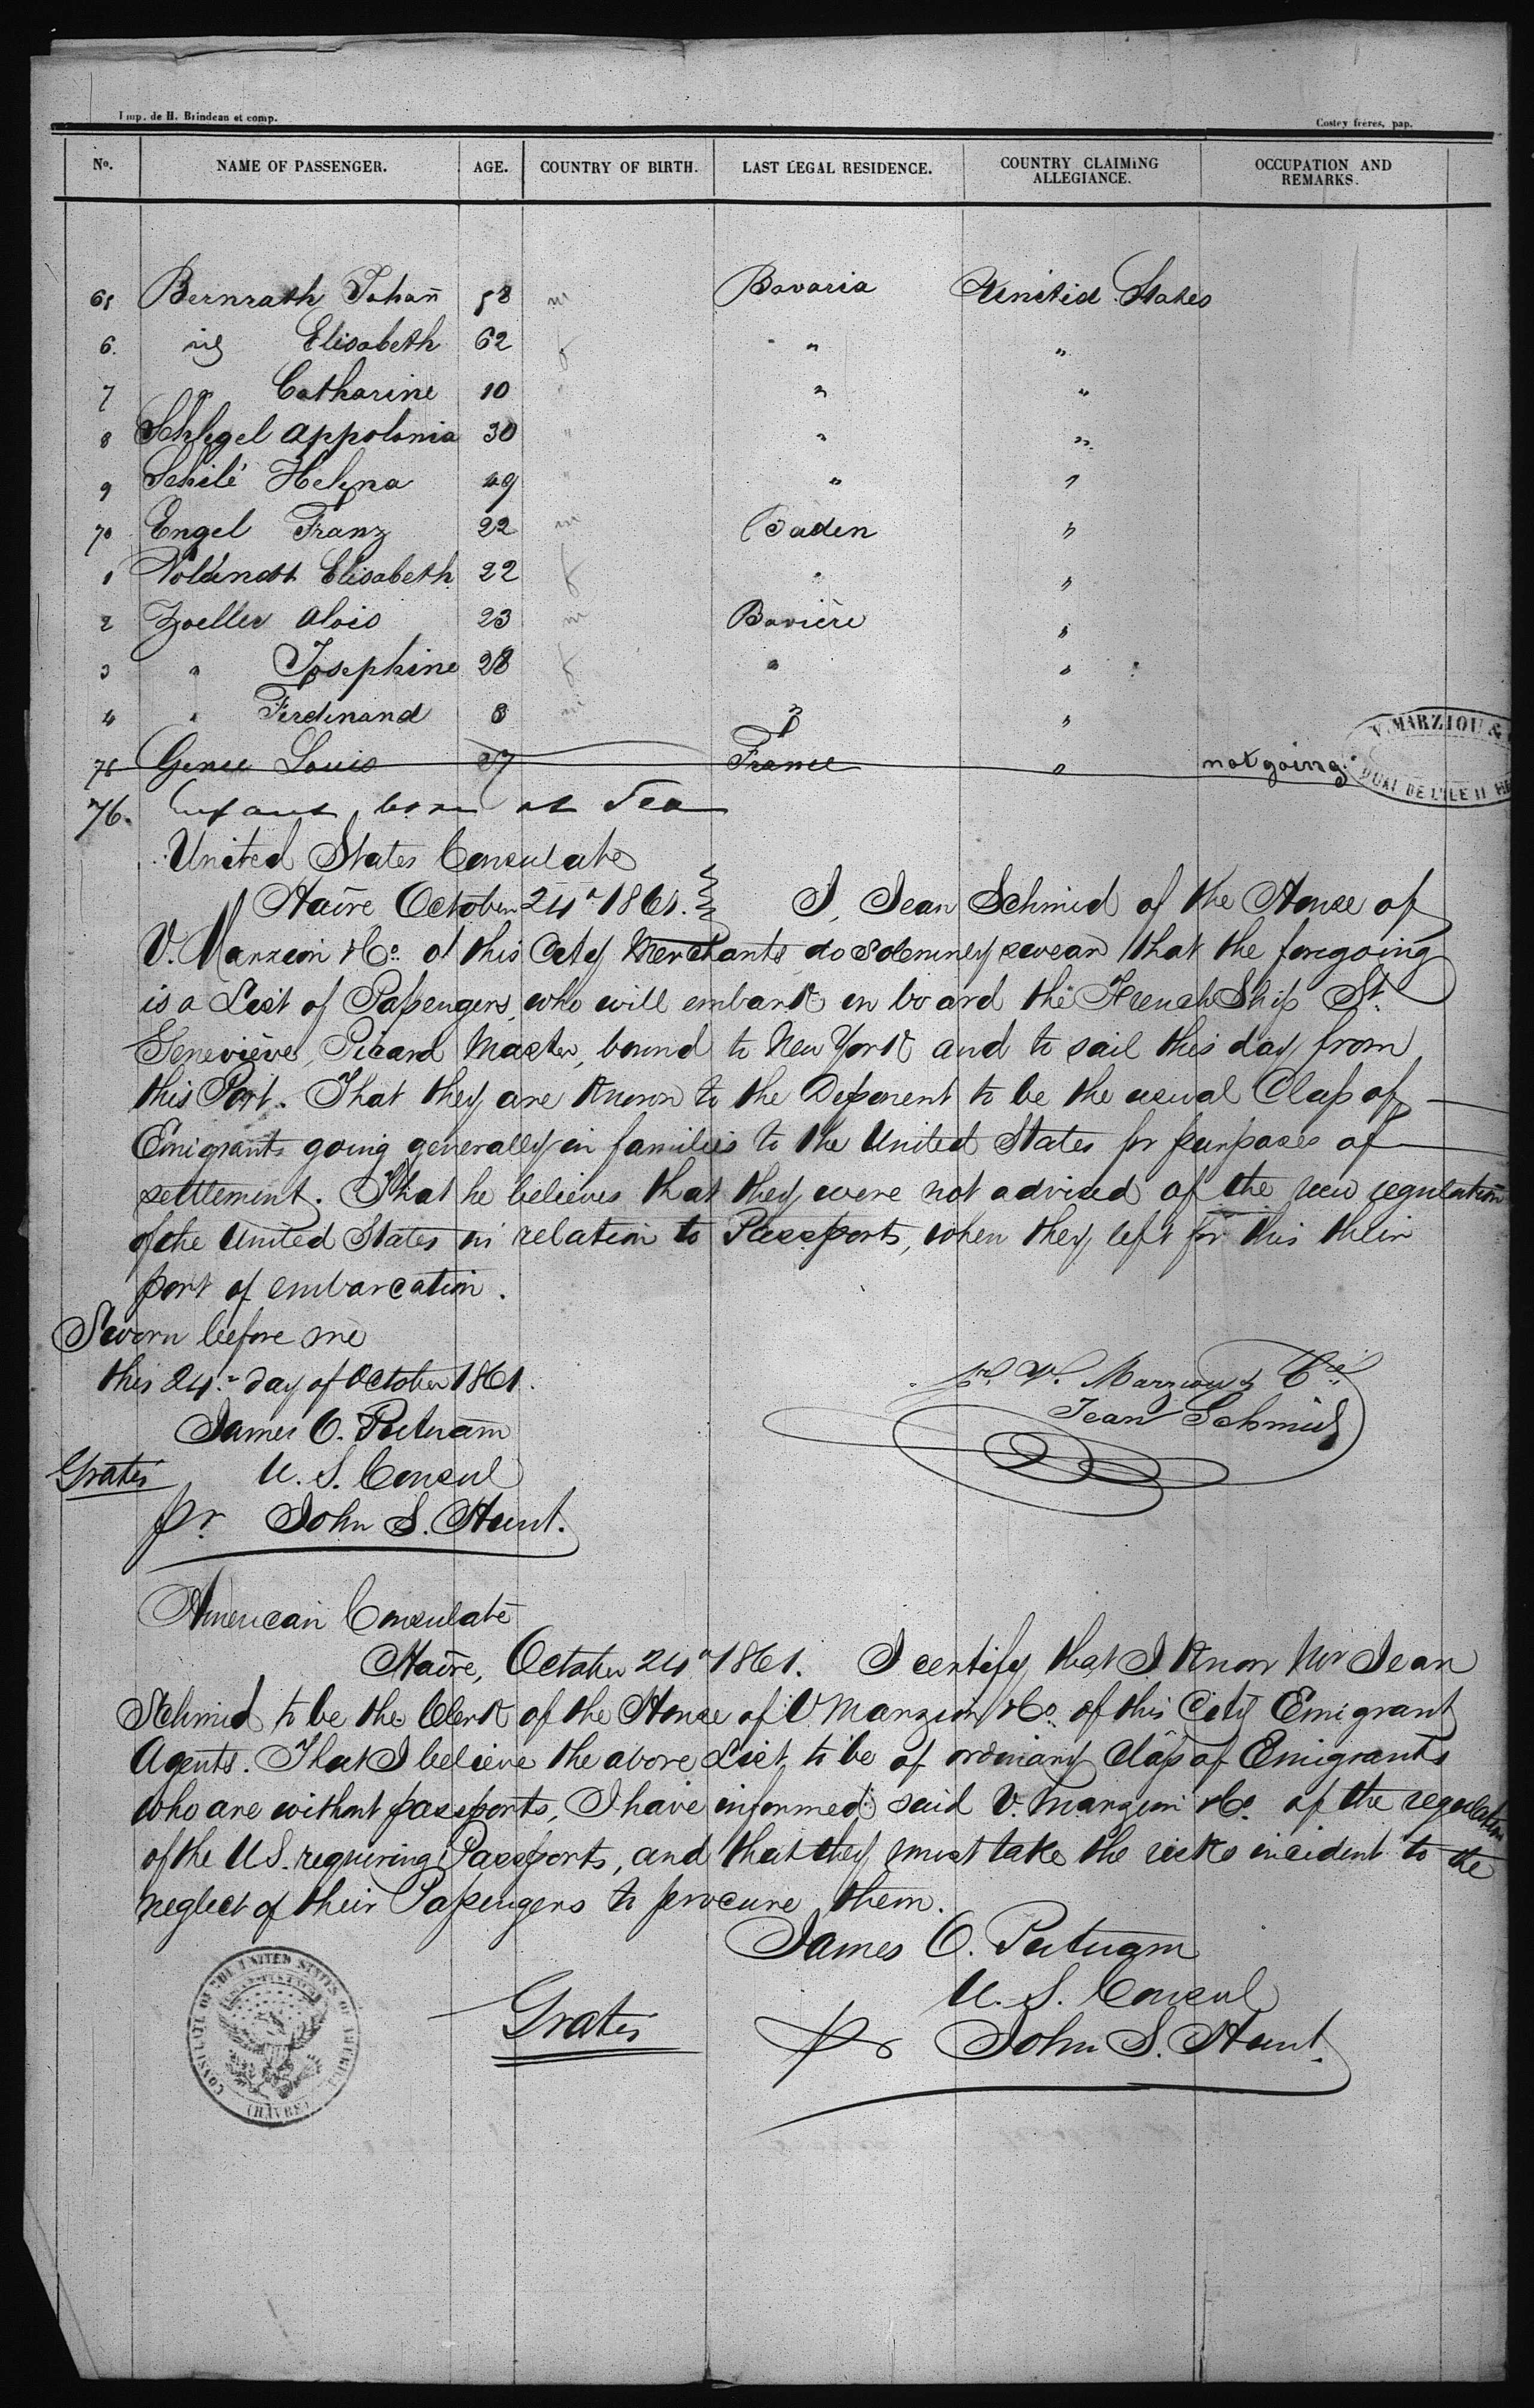 Imp. de H. Brindeau et comp.
Costey frères, pap.
No. NAME OF PASSENGER. AGE. COUNTRY OF BIRTH. LAST LEGAL RESIDENCE. COUNTRY CLAIMING ALLEGIANCE. OCCUPATION AND REMARKS.
65 Bernrath Johañ 58 m Bavaria United States
6. Elisabeth 62 f " "
7 " Catharine 10 " " "
8 Schlegel Appolonia 30 " " "
9 Schilé Helena 49 " " "
70 Engel Franz 22 m Baden "
1 Elisabeth 22 f " "
2 Zoeller Alois 23 m Bavière "
3 " Josephine 28 f " "
4 " Ferdinand 8 m " "
75 Louis 27 France " not going
V. MARZIOU &
QUAI DE L'ILE 11
76. Infant born at Sea
United States Consulate
Havre October 24" 1861. I, Jean Schmid of the House of
V. Marziou & Co. of this City Merchants do solemnly swear that the foregoing
is a List of Passengers, who will embark on board the French Ship St.
Genevieve, Picard Master, bound to New York and to sail this day from
this Port. That they are known to the Deponent to be the usual Class of
Emigrants going generally in families to the United States for purposes of
settlement. That he believes that they were not advised of the new regulation
of the United States in relation to Passports, when they left for this their
port of embarcation.
Sworn before me
this 24." day of October 1861.
pr. V. Marziou & Cie
James O. Putnam
Jean Schmid
Gratis U. S. Consul
pr. John S. Hunt.
American Consulate
Havre, October 24" 1861. I certify that I know Mr Jean
Schmid to be the Clerk of the House of V Marziou & Co. of this City Emigrant
Agents. That I believe the above List to be of ordinary Class of Emigrants
who are without passports, I have informed said V. Marziou & Co. of the regulation
of the U.S. requiring Passports, and that they must take the risks incident to the
neglect of their Passengers to procure them.
James O. Putnam
U. S. Consul
Gratis pr John S. Hunt.
CONSULATE OF THE UNITED STATES OF AMERICA
(HAVRE)